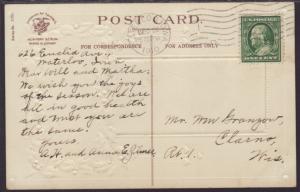 POST CARD.
FOR CORRESPONDENCE
FOR ADDRESS ONLY
626 Euclid Ave.
Waterloo, Iowa
Dear Will and Martha:
We wish you the joys
of the season. We are
all in good health
and trust you are
the same.
Yours
A.H. and Anna E.
Mr. Wm Granzow
Clarno,
Rt. 1. Wis.
ONE CENT